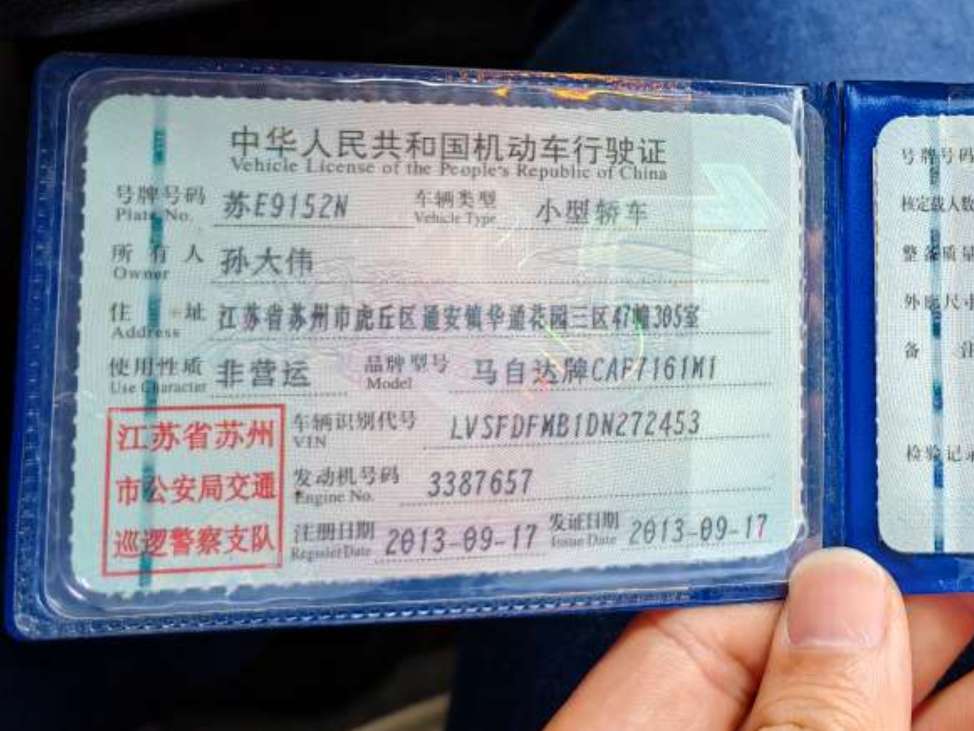 中华人民共和国机动车行驶证
Vehicle License of the People's Republic of China
号牌号码 苏E9152N 车辆类型 小型轿车
Plate No. Vehicle Type
所有人 孙大伟
Owner
住址 江苏省苏州市虎丘区通安镇华通花园三区47幢305室
Address
使用性质 非营运 品牌型号 马自达牌CAF7161M1
Use Character Model
江苏省苏州
市公安局交通
巡逻警察支队
车辆识别代号 LVSFDFMB1DN272453
VIN
发动机号码 3387657
Engine No.
注册日期 2013-09-17 发证日期 2013-09-17
Register Date Issue Date
号牌号码
核定载人数
整备质量
外廓尺寸
备 注
检验记录